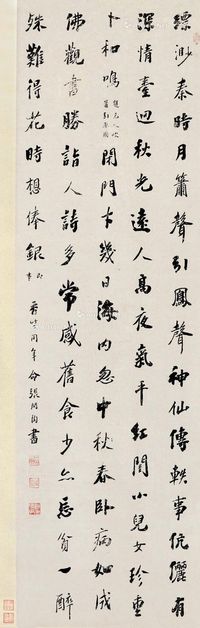 缥渺秦時月簫聲引鳳聲神仙傳軼事伉儷有
深情臺迥秋光遠人高夜氣平紅閨小兒女珍重
卜和鳴
閉門才幾日海内忽中秋春卧病如成
佛觀書勝詣人詩多常感舊食少亦忘貧一醉
殊難得花時想俸銀
香 同年 張問陶書